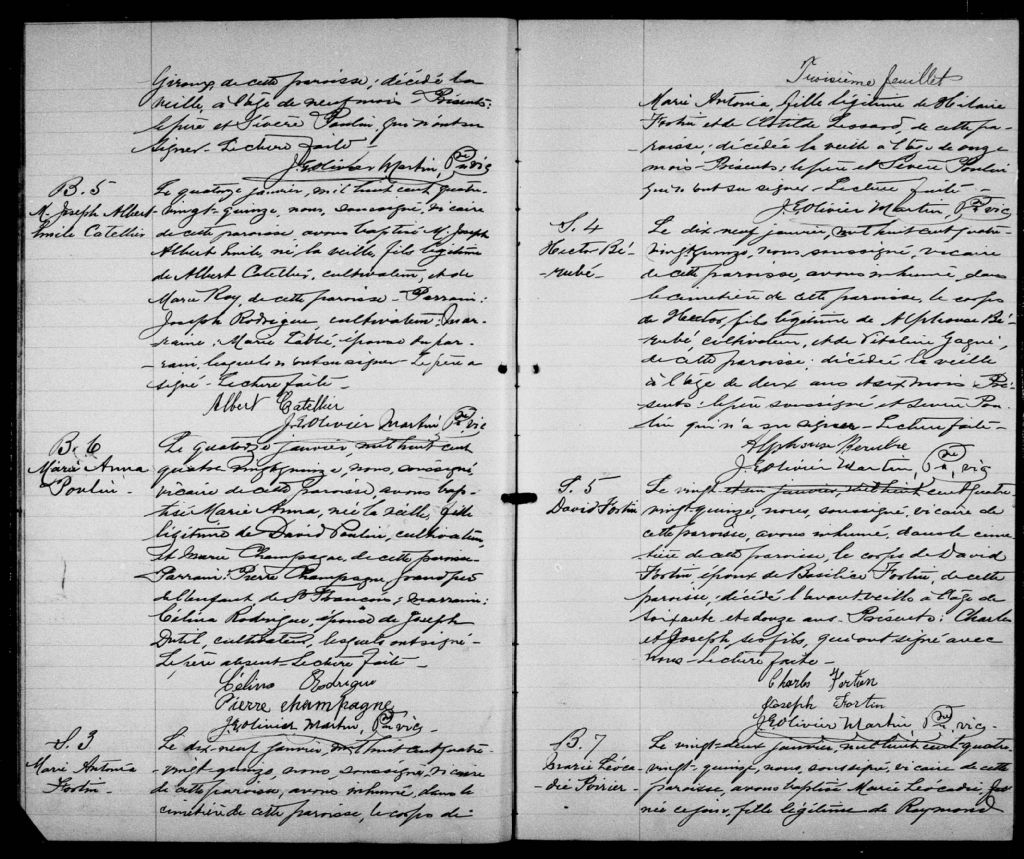 Giroux, de cette paroisse ; décédé la
veille, à l'âge de neuf mois - Présents :
le père et Sévère Poulin, qui n'ont su
signer - Lecture faite
J.E. Olivier Martin, Ptre vic
B. 5
M. Joseph Albert
Emile Catellier
Le quatorze janvier, mil huit cent quatre-
-vingt-quinze, nous, soussigné, vicaire
de cette paroisse, avons baptisé M. Joseph
Albert Emile, né la veille, fils légitime
de Albert Catellier, cultivateur, et de
Marie Roy, de cette paroisse - Parrain :
Joseph Rodrigue, cultivateur ; mar-
raine : Marie Labbé, épouse du par-
-rain, lesquels n'ont su signer - Le père a
signé - Lecture faite -
Albert Catellier
J.E. Olivier Martin Ptre vic
B. 6
Marie Anna
Poulin -
Le quatorze janvier, mil huit cent
quatre vingt quinze, nous, soussigné
vicaire de cette paroisse, avons bap-
tisé Marie Anna, née la veille, fille
légitime de David Poulin, cultivateur,
et Marie Champagne, de cette paroisse -
Parrain : Pierre Champagne, grand père
de l'enfant de St François ; marraine :
Célina Rodrigue, épouse de Joseph
Dutil, cultivateur, lesquels ont signé -
Le père absent Lecture faite -
Célina Rodrigue
Pierre champagne
J.E. Olivier Martin, Ptre vic -
S. 3
Marie Antonia
Fortin -
Le dix-neuf janvier mil huit cent quatre-
-vingt-quinze, nous, soussigné, vicaire
de cette paroisse, avons inhumé, dans le
cimétière de cette paroisse, le corps de
Troisième feuillet
Marie Antonia, fille légitime de Hilaire
Fortin et de Clotilde Lessard, de cette pa-
-roisse ; décédée la veille à l'âge de onze
mois - Présents : le père et Sévère Poulin
qui n'ont su signer - Lecture faite -
J.E. Olivier Martin, Ptre vic
S. 4
Hector Bé-
-rubé -
Le dix neuf janvier, mil huit cent quatre-
vingt quinze, nous soussigné, vicaire
de cette paroisse, avons inhumé, dans
le cimetière de cette paroisse, le corps
de Hector, fils légitime de Alphonse Bé-
-rubé, cultivateur, et de Vitaline Gagné,
de cette paroisse ; décédé la veille
à l'âge de deux ans et six mois Pré-
sents : le père soussigné et Sévère Pou-
lin qui n'a su signer - Lecture faite -
Alphonse Berubre
J.E. Olivier Martin, Ptre, vic
S. 5
David Fortin
Le vingt et un janvier, mil huit cent quatre-
vingt-quinze, nous, soussigné, vicaire de
cette paroisse, avons inhumé, dans le cime-
tière de cette paroisse, le corps de David
Fortin, époux de Basilice Fortin, de cette
paroisse ; décédé l'avant veille à l'âge de
soixante et douze ans - Présents : Charles
et Joseph ses fils, qui ont signé avec
nous - Lecture faite -
Charles Fortin
Joseph Fortin
J.E. Olivier Martin, Ptre, vic -
B. 7
Marie Léoca-
-die Poirier -
Le vingt-deux janvier, mil huit cent quatre-
-vingt-quinze, nous, soussigné, vicaire de cette
paroisse, avons baptisé Marie Léocadie,
née ce jour, fille légitime de Raymond